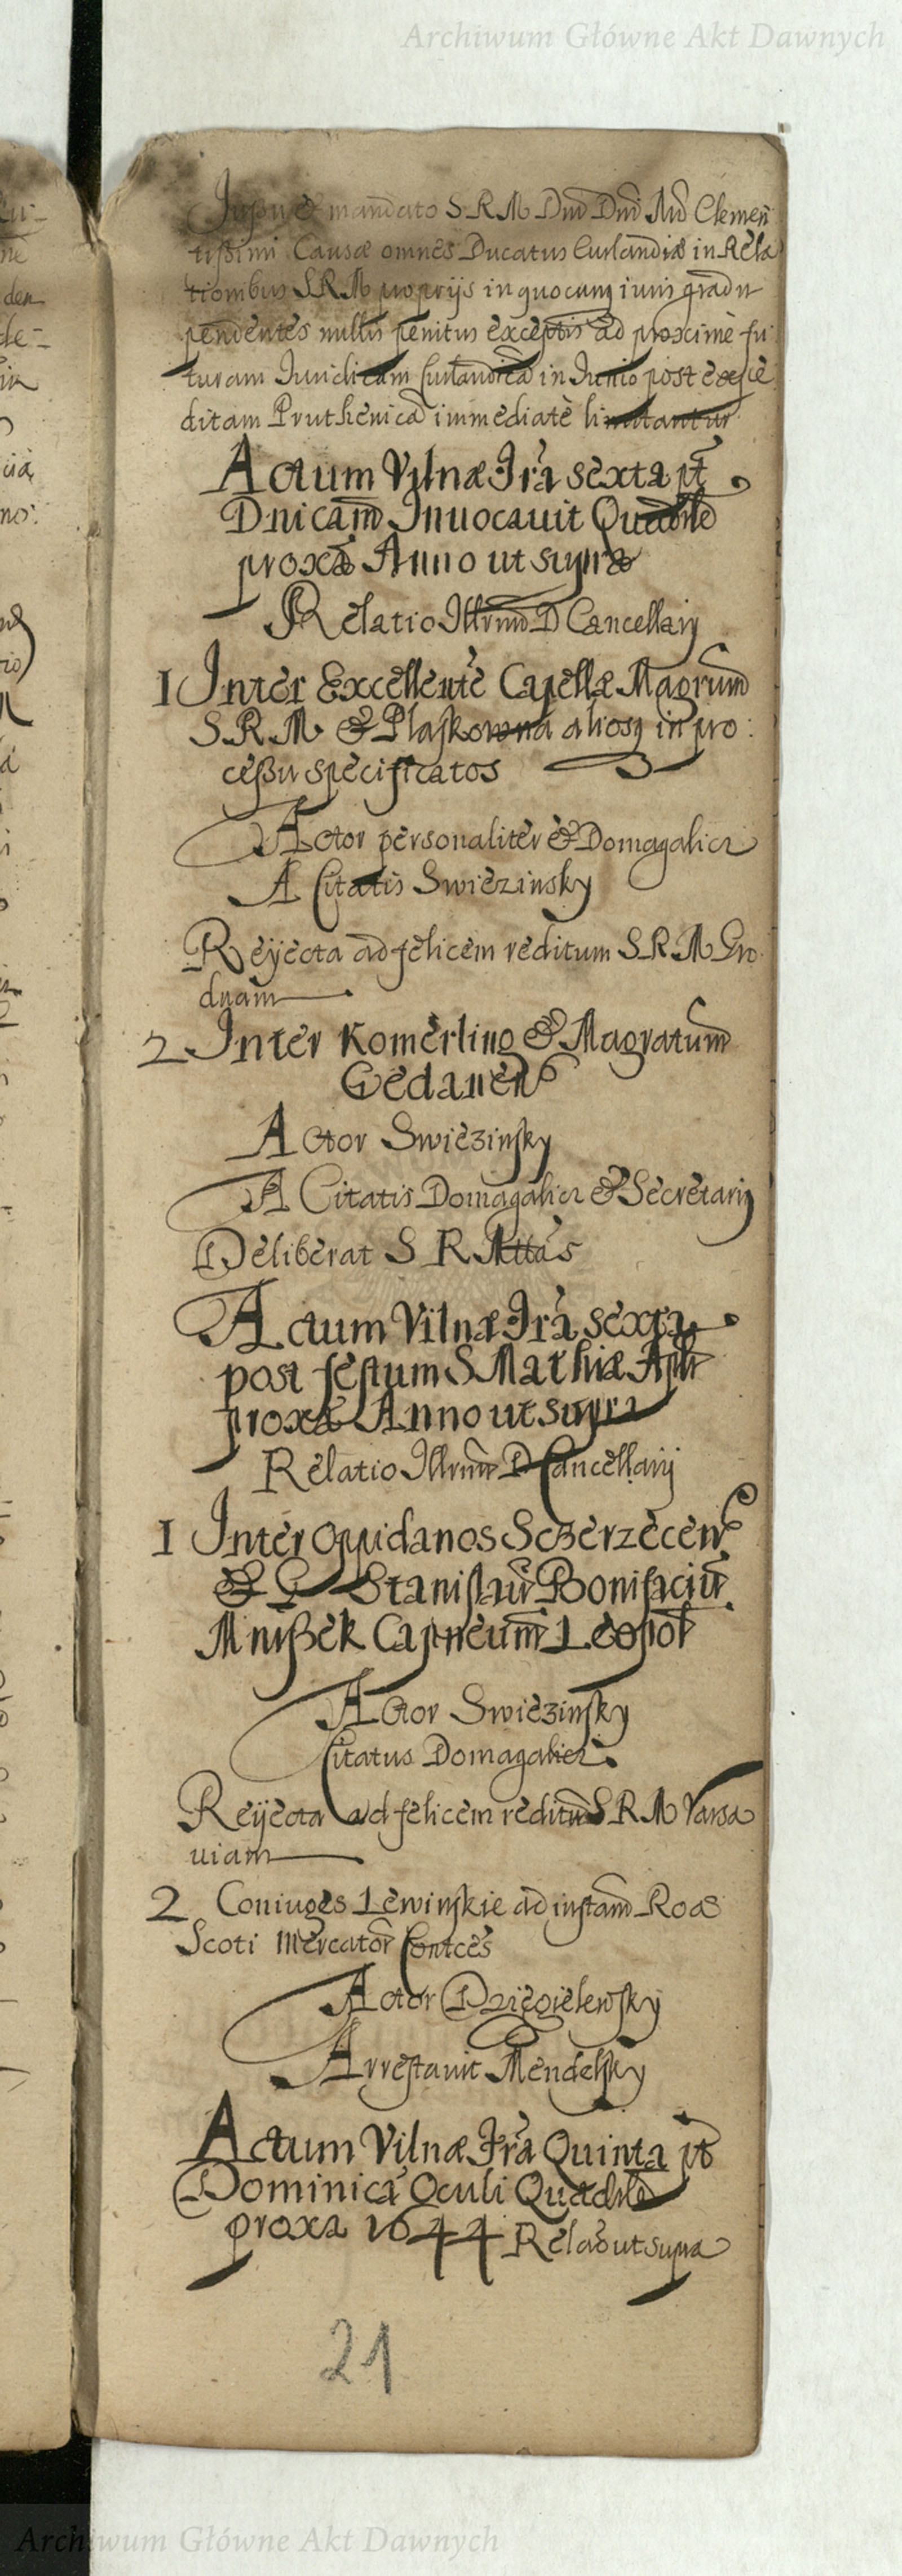 Archiwum Główne Akt Dawnych
Jussu et mandato S R M Dni Dni Nri Clemen
tissimi Causæ omnes Ducatus Curlandiæ in Rela
tionibus S R M proprijs in quocunq iuris gradu
pendentes nullis penitus exceptis ad proxime fu
turam Iuridicam Curlandica in Junio post expe
ditam Pruthenica immediatè limitantur
Actum Vilnæ Fr̃a sexta pt
Dnicam Inuocauit Quadrle
proxa Anno ut supra
Relatio Illrmi D Cancellarij
1 Inter Excellente Capellæ Magrum
S. R. M. et Plaskowna aliosq in pro:
cessu specificatos
Actor personaliter et Domagalicz
A Citatis Swiezinsky
Reijecta ad felicem reditum S R M Gro
dnam
2 Inter Komerling et Magratum
Gedanen
Actor Swiezinsky
A Citatis Domagalicz et Secretarij
Deliberat S R Mttas
Actum Vilnæ Fr̃a sexta
post festum S Mathiæ Apli
proxa Anno ut supra
Relatio Illrmi D Cancellarij
1 Inter Oppidanos Sczerzecen
et G Stanislau Bonifaciu
Mnissek Capneum Leopol
Actor Swiezinsky
Citatus Domagalicz
Reijecta ad felicem reditu S R M Varsa
uiam
2 Coniuges Lewinskie ad instam Roæ
Scoti Mercator Contces
Actor Dziegielewsky
Arrestauit Mendelsky
Actum Vilnæ Fr̃a Quinta pt
Dominica Oculi Quadrle
proxa 1644 Relao ut supra
21
Archiwum Główne Akt Dawnych